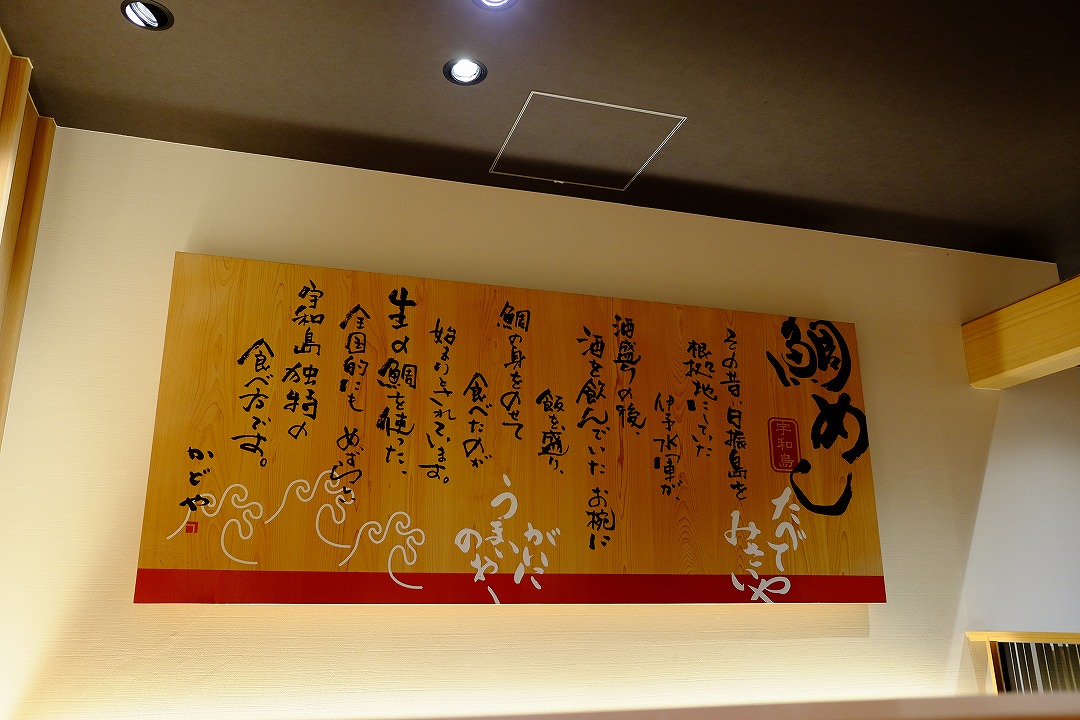 鯛めし
宇和島
たべてや
みさいや
その昔、日振島を
根拠地にしていた
伊予水軍が、
酒盛りの後、
酒を飲んでいたお椀に
飯を盛り、
鯛の身をのせて
食べたのが
始まりとされています。
がいに
うまい
のわー
生の鯛を使った、
全国的にもめずらしい
宇和島独特の
食べ方です。
かどや